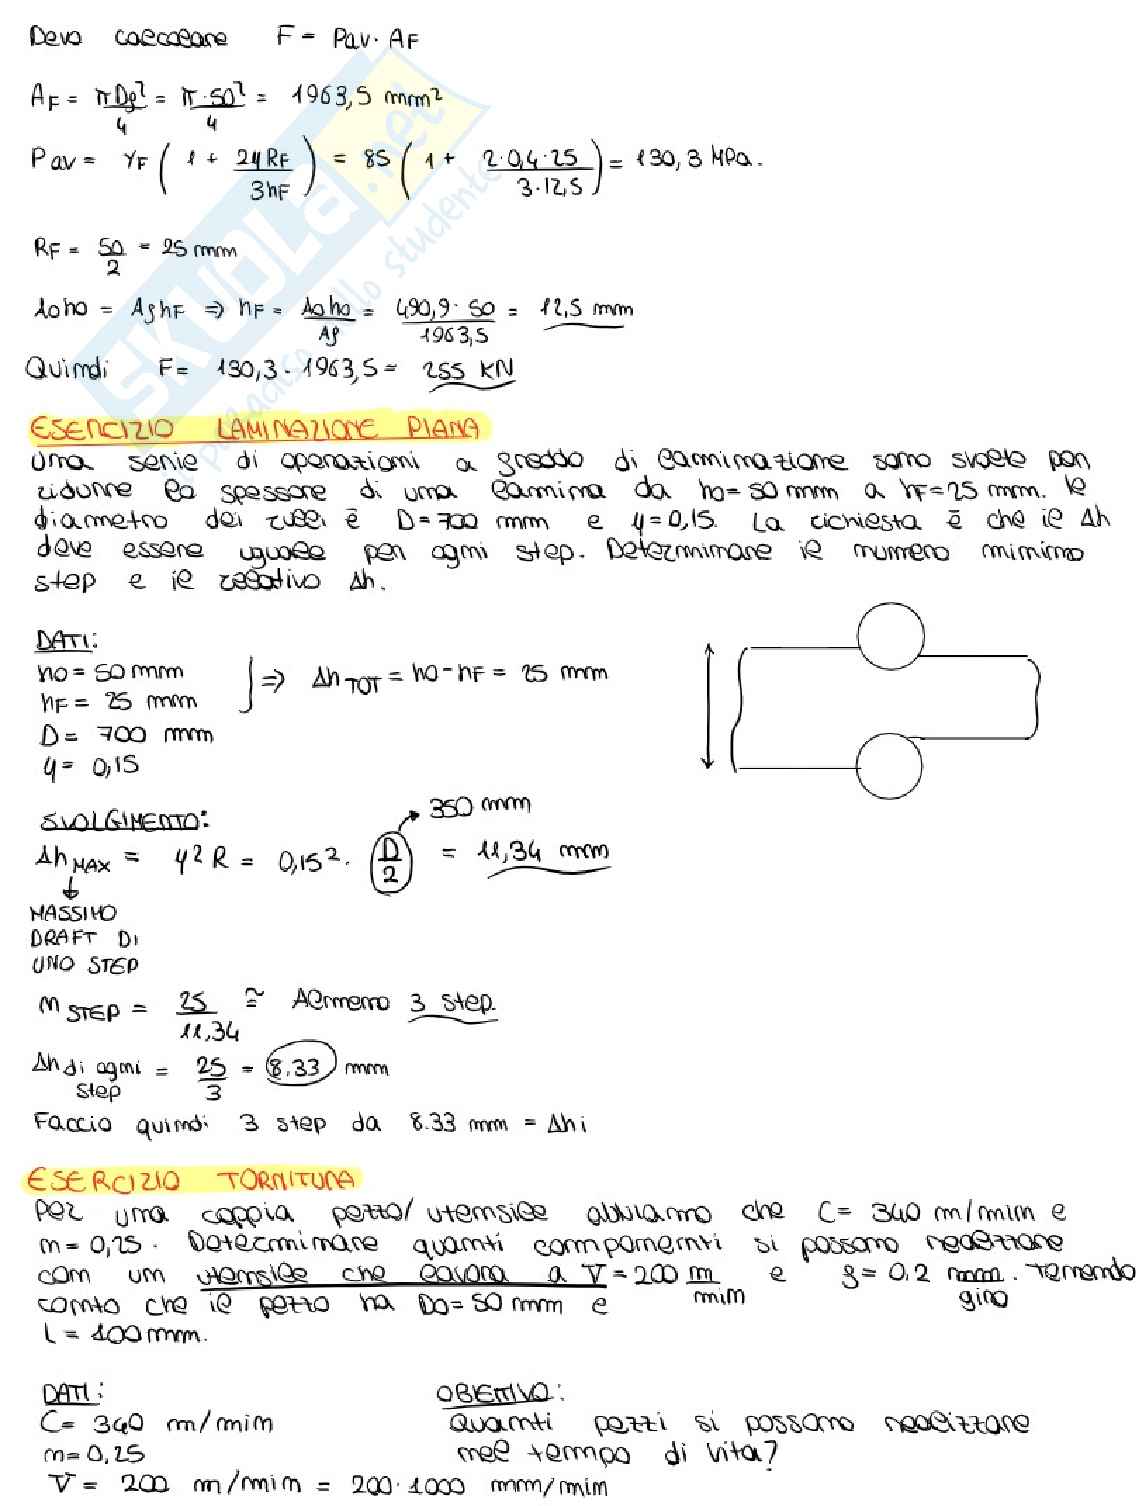 Devo calcolare F = Pav · AF
AF = πDf²/4 = π·50²/4 = 1963,5 mm²
Pav = YF ( 1 + 2μRF/3hF ) = 85 ( 1 + 2·0,4·25/3·12,5 ) = 130,3 MPa.
RF = 50/2 = 25 mm
A0h0 = AfhF ⇒ hF = A0h0/Af = 490,9·50/1963,5 = 12,5 mm
Quindi F = 130,3 · 1963,5 = 255 KN
ESERCIZIO LAMINAZIONE PIANA
Una serie di operazioni a freddo di laminazione sono svolte per
ridurre lo spessore di una lamina da h0 = 50 mm a hF = 25 mm. Il
diametro dei rulli è D = 700 mm e μ = 0,15. La richiesta è che il Δh
deve essere uguale per ogni step. Determinare il numero minimo
step e il relativo Δh.
DATI:
h0 = 50 mm
hF = 25 mm
⇒ ΔhTOT = h0 - hF = 25 mm
D = 700 mm
μ = 0,15
SVOLGIMENTO:
350 mm
ΔhMAX = μ²R = 0,15² · D/2 = 11,34 mm
MASSIMO
DRAFT DI
UNO STEP
nSTEP = 25/11,34 ≅ Almeno 3 step.
Δh di ogni step = 25/3 = 8.33 mm
Faccio quindi 3 step da 8.33 mm = Δhi
ESERCIZIO TORNITURA
Per una coppia pezzo/utensile abbiamo che C = 340 m/min e
n = 0,25. Determinare quanti componenti si possono realizzare
con un utensile che lavora a V = 200 m/min e f = 0,2 mm/giro. Tenendo
conto che il pezzo ha D0 = 50 mm e
l = 100 mm.
DATI:
C = 340 m/min
n = 0,25
V = 200 m/min = 200·1000 mm/min
OBIETTIVO:
Quanti pezzi si possono realizzare
nel tempo di vita?
SKUOLA.net
paradiso dello studente